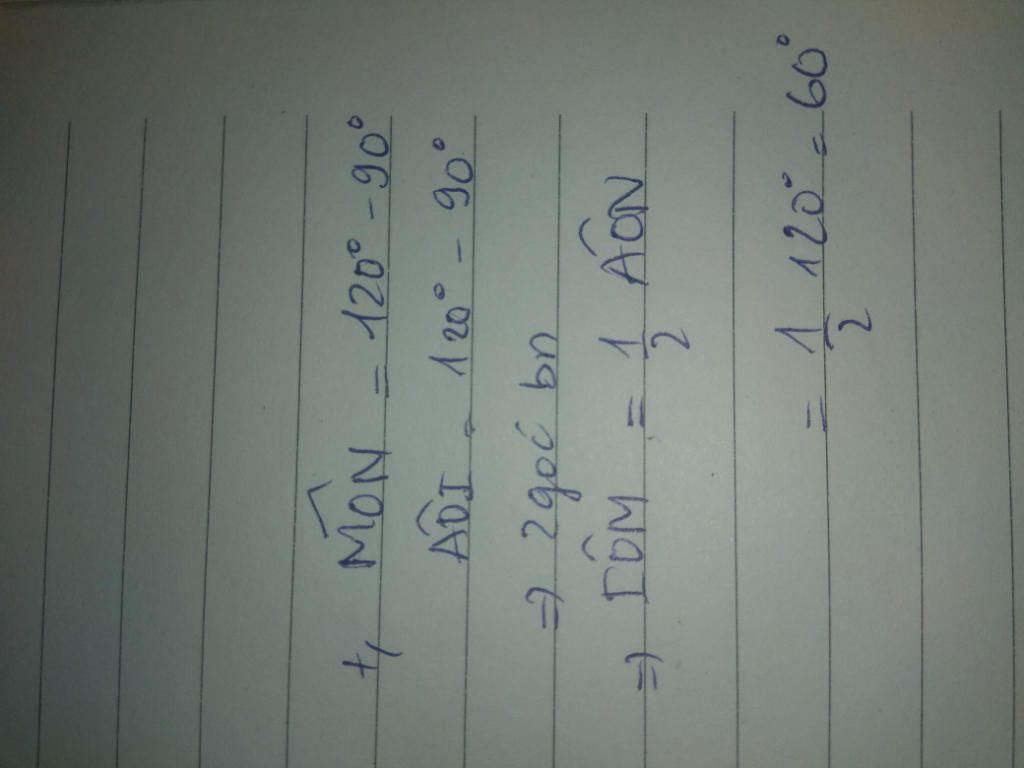 +, MÔN = 120° - 90°
AÔI = 120° - 90°
=> 2 goć bn
=> IÔM = 1/2 AÔN
= 1/2 120° = 60°